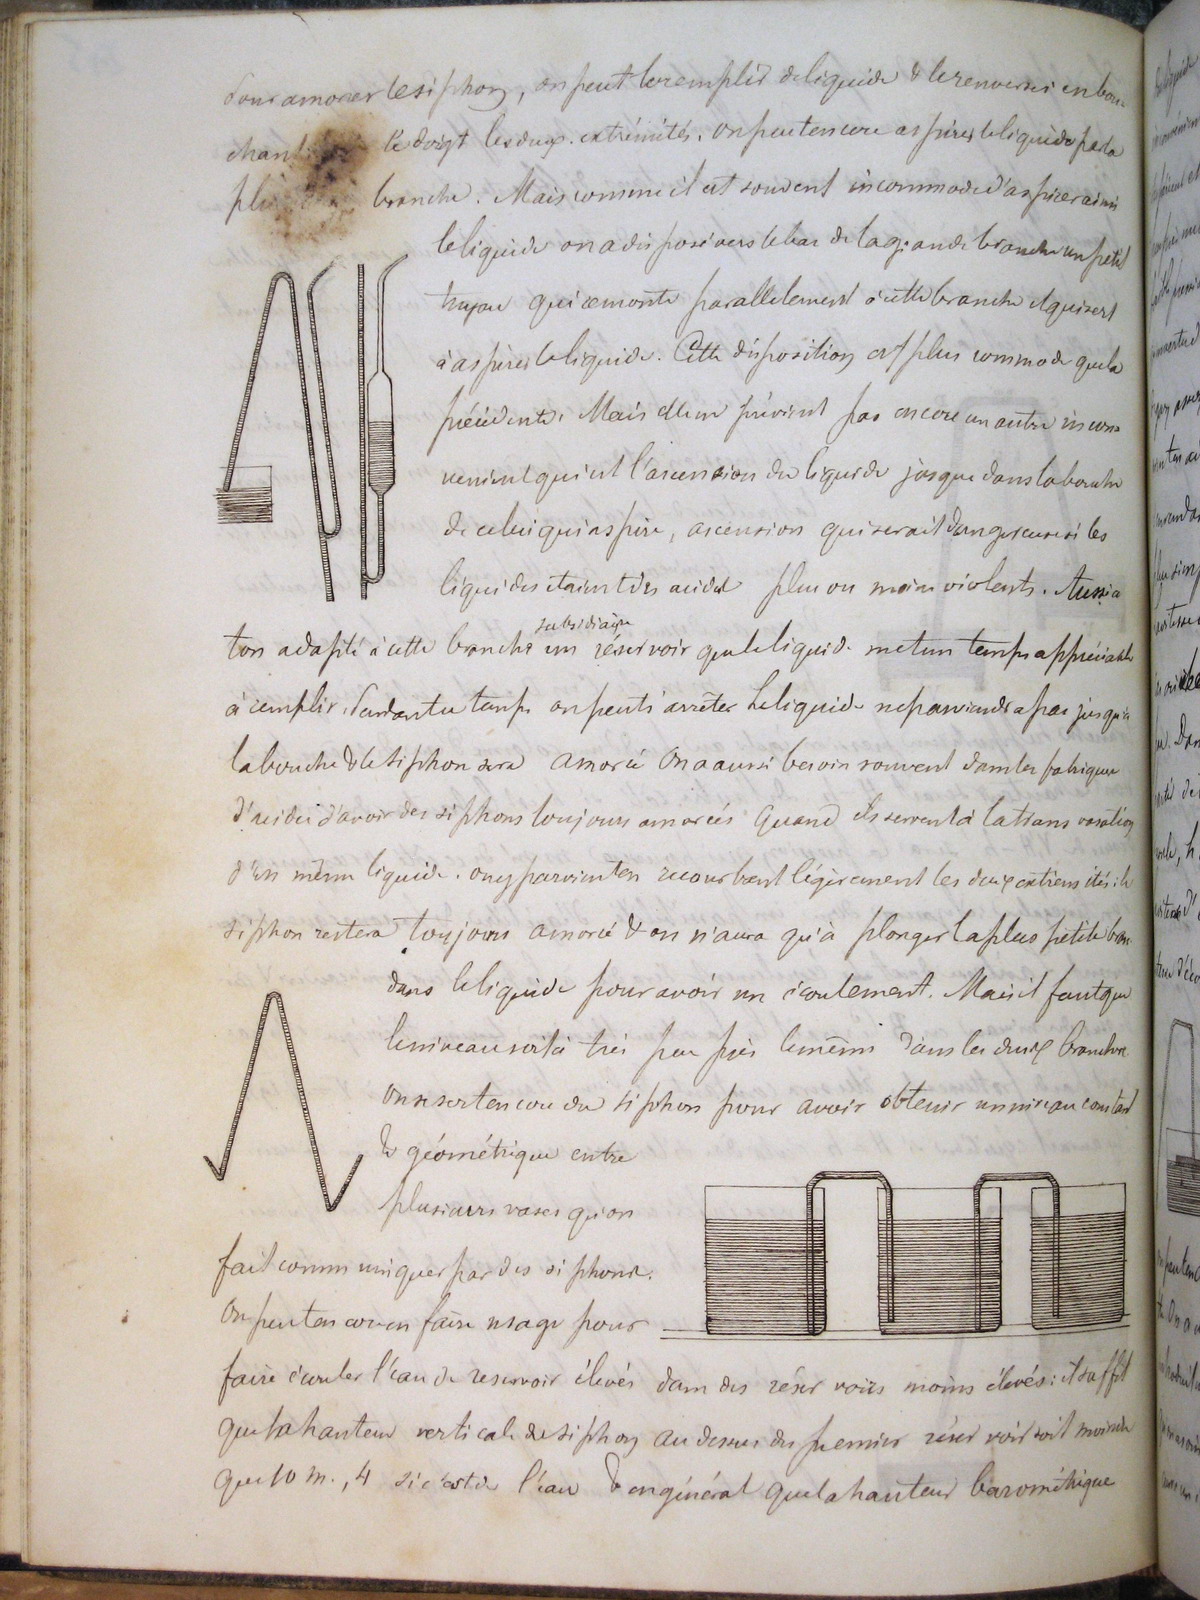 Pour amorcer le siphon, on peut le remplir de liquide & le renverser en bou-
chant le doigt les deux extrémités. On peut encore aspirer le liquide par la
plus branche. Mais comme il est souvent incommode d'aspirer ainsi
le liquide on a disposé vers le bas de la grande branche un petit
tuyau qui remonte parallelement à cette branche et qui sert
à aspirer le liquide. Cette disposition est plus commode que la
précédente. Mais elle ne prévient pas encore un autre incon-
venient qui est l'ascension du liquide jusque dans la bouche
de celui qui aspire, ascension qui serait dangereuse si les
liquides étaient des acides plus ou moins violents. Aussi a
t'on adapté à cette branche subsidiaire un réservoir que le liquide met un temps appréciable
à remplir. Pendant ce temps on peut s'arrêter & le liquide ne parviendra pas jusqu'à
la bouche & le siphon sera amorcé On a aussi besoin souvent dans les fabriques
d'acides d'avoir des siphons toujours amorcés Quand ils servent à la transvasation
d'un même liquide. on y parvient en recourbant légèrement les deux extremités: le
siphon restera toujours amorcé & on n'aura qu'à plonger la plus petite bran.
dans le liquide pour avoir un écoulement. Mais il faut que
le niveau soit à très peu près le même dans les deux branches
On se sert encore du siphon pour avoir obtenir un niveau constant
& géométrique entre
plusieurs vases qu'on
fait communiquer par des siphons.
On peut encore en faire usage pour
faire écouler l'eau de reservoir élevés dans des réservoirs moins élevés: il suffit
que la hauteur verticale du siphon au dessus du premier réservoir soit moindre
que 10 m., 4 si c'est de l'eau & en général que la hauteur barométrique